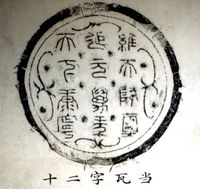 維天降靈
延元萬年
天下康寧
十二字瓦当